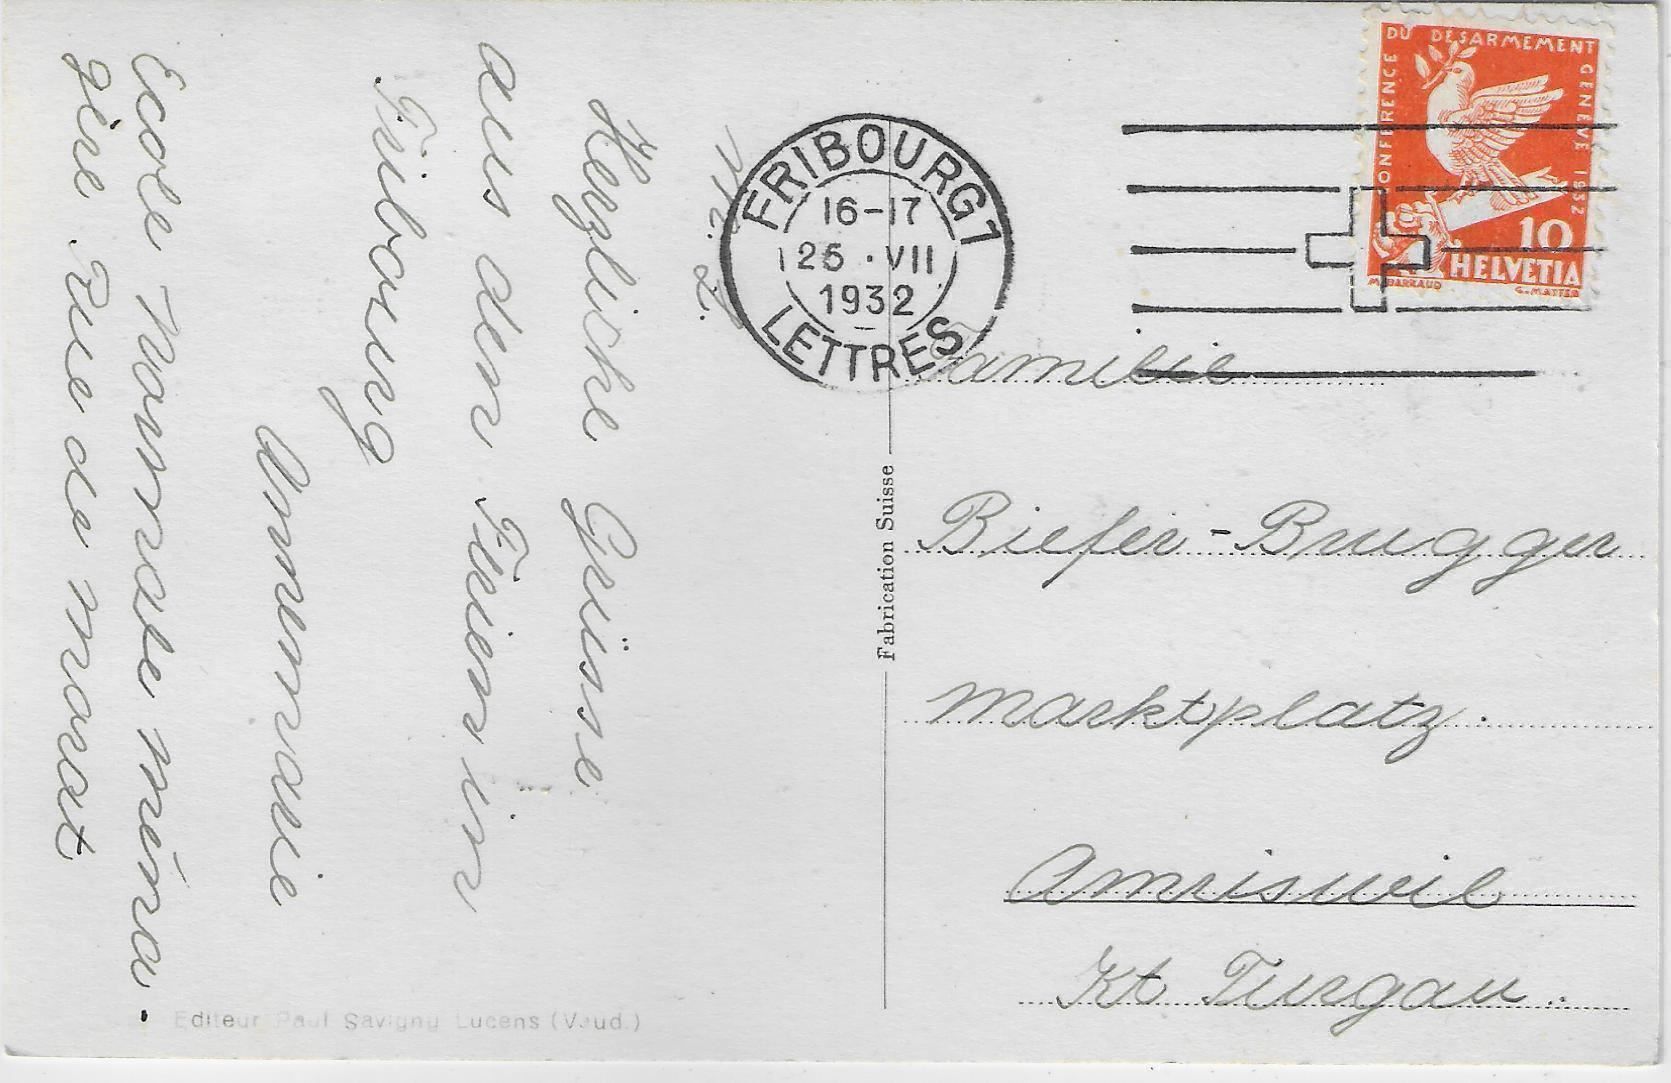 M. L.
Herzliche Grüsse
aus den Ferien in
Fribourg
Annemarie
Ecole Normale ména-
gère Rue de morat
FRIBOURG 1
16-17
25 · VII
1932
LETTRES
CONFERENCE DU DESARMEMENT GENEVE 1932
10
HELVETIA
M. BARRAUD G. MATTER
Familie
Biefer-Brugger
Marktplatz.
Amrisweil
Kt Turgau.
Fabrication Suisse
Editeur Paul Savigny Lucens (Vaud.)